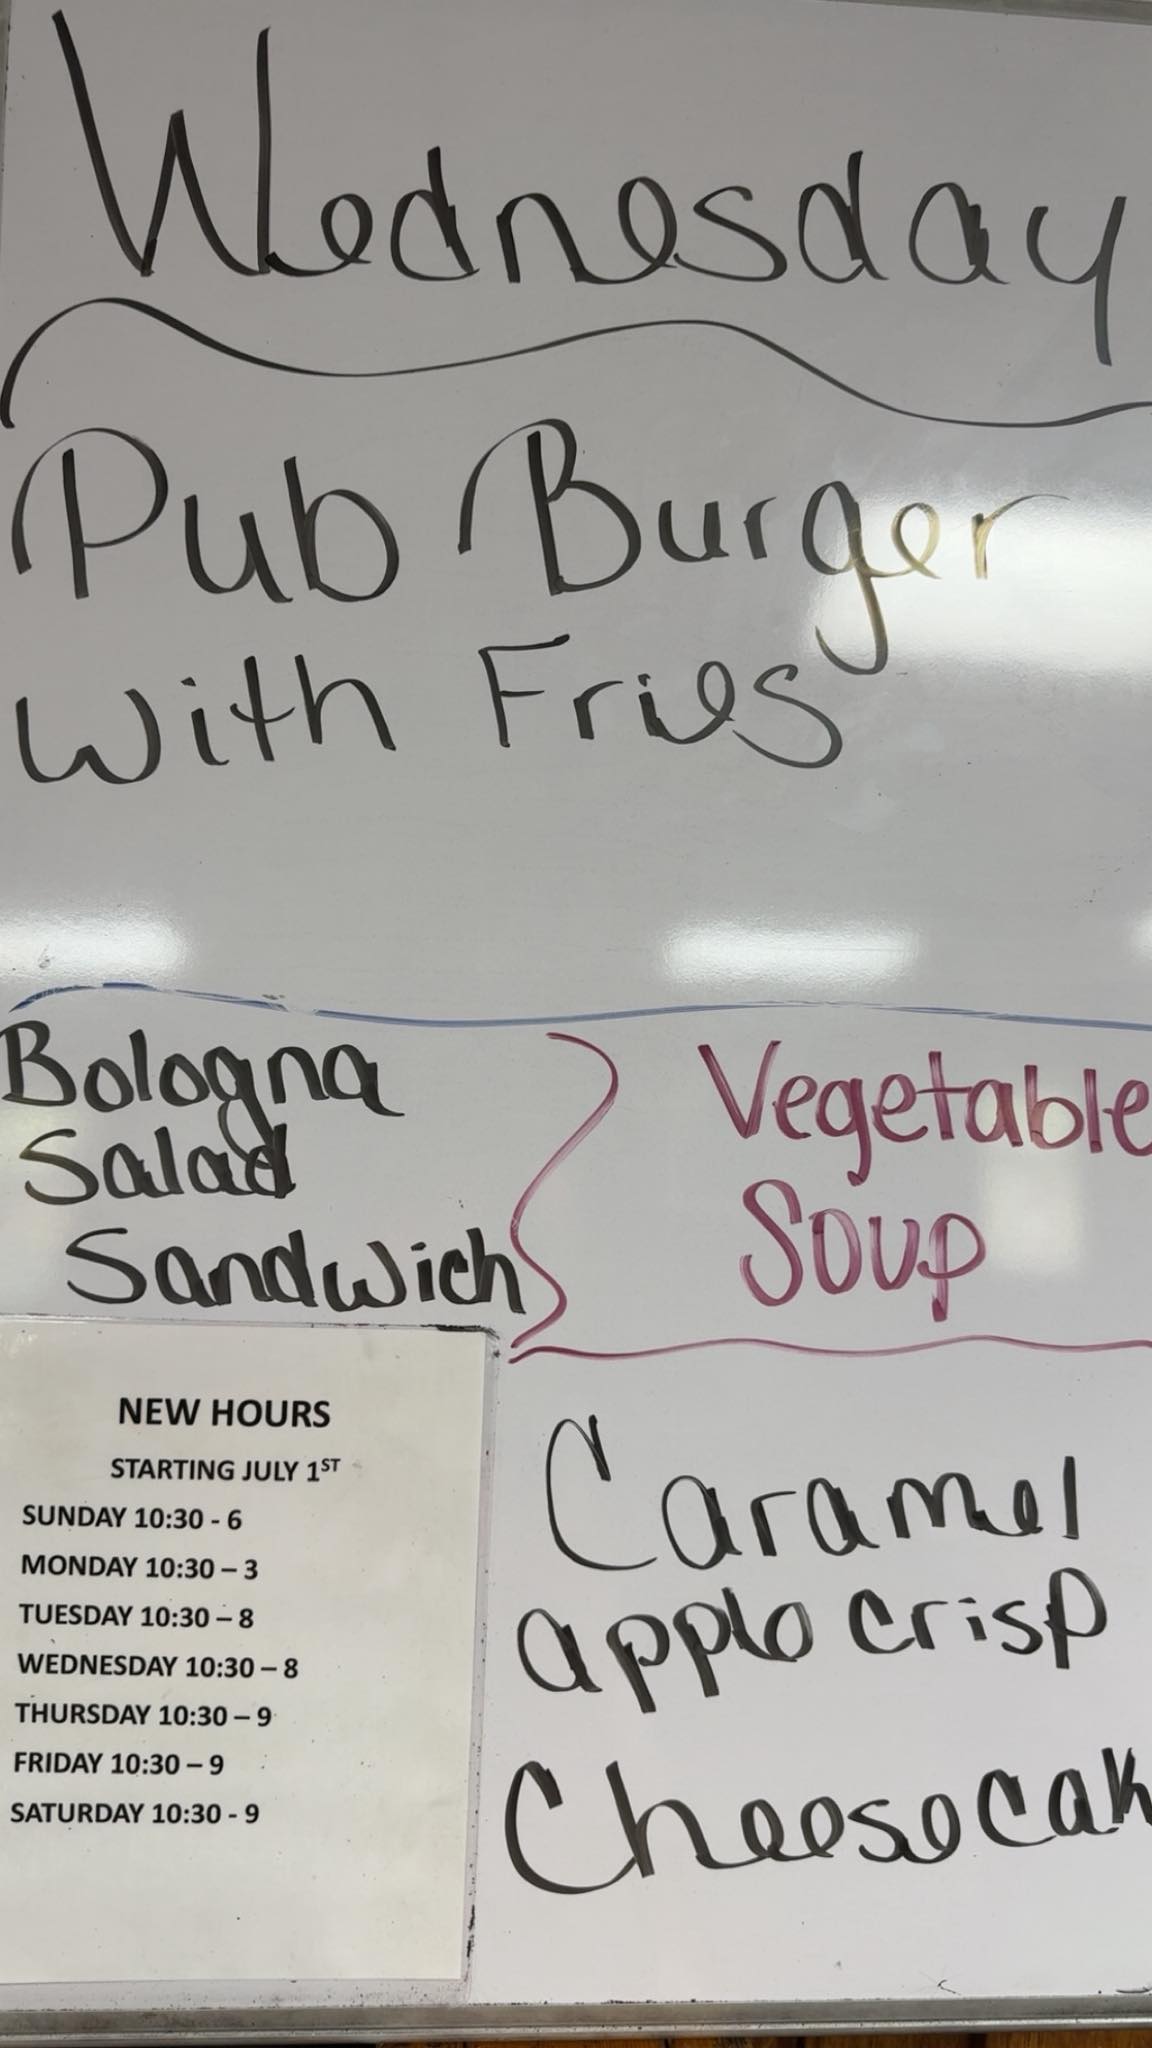 Wednesday
Pub Burger
with Fries
Bologna
Salad
Sandwich
Vegetable
Soup
NEW HOURS
STARTING JULY 1ST
SUNDAY 10:30 - 6
MONDAY 10:30 – 3
TUESDAY 10:30 – 8
WEDNESDAY 10:30 – 8
THURSDAY 10:30 – 9
FRIDAY 10:30 – 9
SATURDAY 10:30 - 9
Caramel
apple crisp
Cheesecak